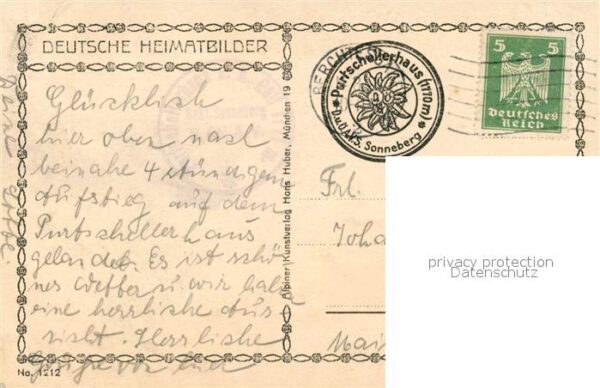 DEUTSCHE HEIMATBILDER
Glücklich
hier oben nach
beinahe 4 stündigem
Aufstieg auf dem
Purtschellerhaus
gelandet. Es ist schö-
nes Wetter u. wir haben
eine herrliche Aus-
sicht. Herrliche
Grüße von
No. 1212
Alpiner Kunstverlag Hans Huber, München 19
BERCHTES
Purtschellerhaus (1770m)
D.u.Ö.A.V.S. Sonneberg
5 5
Deutsches
Reich
Frl.
Joha
Mai
privacy protection
Datenschutz